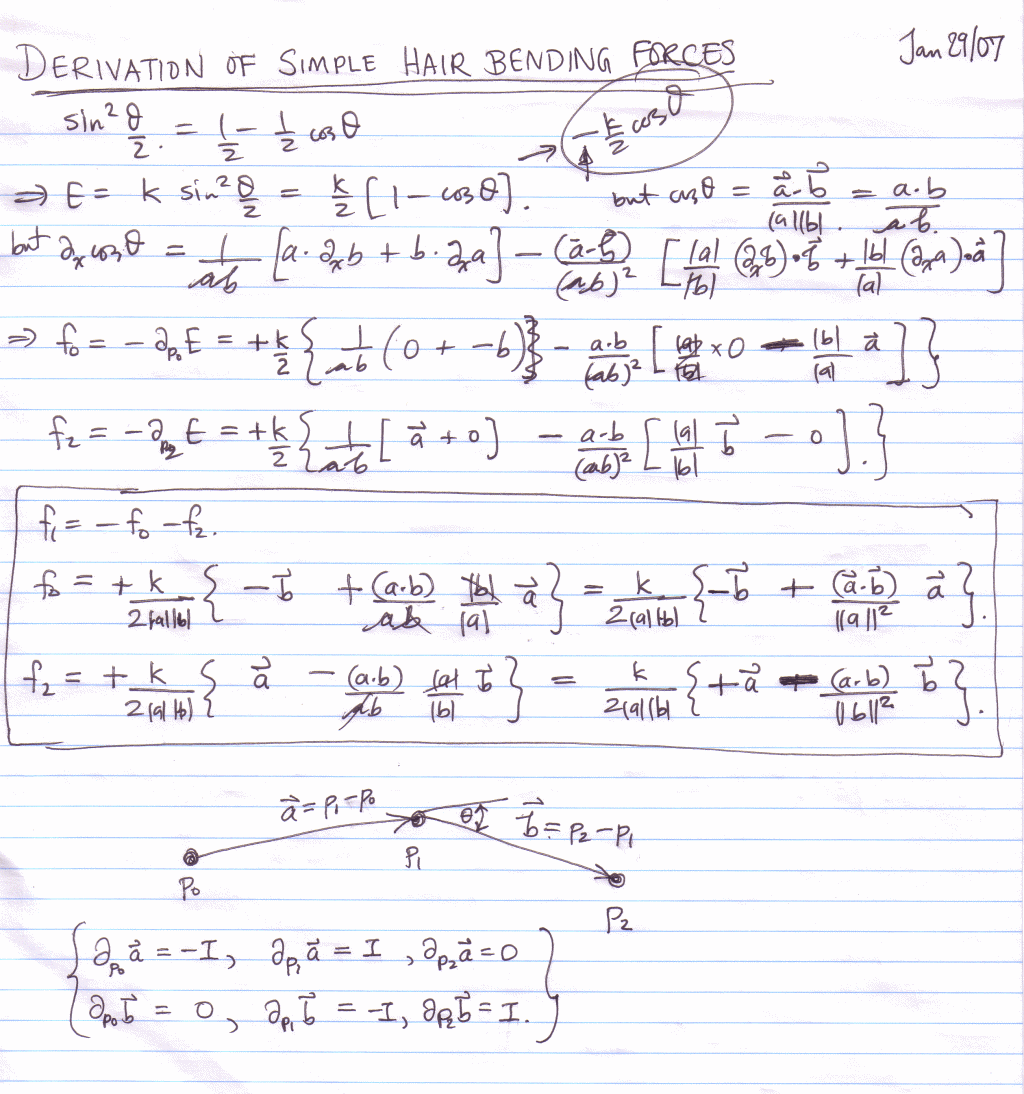 DERIVATION OF SIMPLE HAIR BENDING FORCES Jan 29/07
sin² θ/2 = 1/2 − 1/2 cos θ
−k/2 cos θ
⇒ E = k sin² θ/2 = k/2 [1 − cos θ]. but cos θ = a⃗·b⃗/|a||b|. = a·b/ab.
but ∂ₓ cos θ = 1/ab [a·∂ₓb + b·∂ₓa] − (a⃗·b⃗)/(ab)² [|a|/|b| (∂ₓb)·b⃗ + |b|/|a| (∂ₓa)·a⃗]
⇒ f₀ = −∂p₀E = +k/2 { 1/ab (0 + −b) − a·b/(ab)² [ |a|/|b| × 0 − |b|/|a| a⃗ ] }
f₂ = −∂p₂E = +k/2 { 1/ab [ a⃗ + 0 ] − a·b/(ab)² [ |a|/|b| b⃗ − 0 ]. }
f₁ = −f₀ − f₂.
f₀ = +k/2|a||b| { −b⃗ + (a·b)/ab |b|/|a| a⃗ } = k/2|a||b| { −b⃗ + (a⃗·b⃗)/||a||² a⃗ }.
f₂ = +k/2|a||b| { a⃗ − (a·b)/ab |a|/|b| b⃗ } = k/2|a||b| { +a⃗ − (a·b)/||b||² b⃗ }.
a⃗ = p₁−p₀ θ b⃗ = p₂−p₁
p₀ p₁ p₂
{ ∂p₀ a⃗ = −I, ∂p₁ a⃗ = I, ∂p₂ a⃗ = 0
∂p₀ b⃗ = 0, ∂p₁ b⃗ = −I, ∂p₂ b⃗ = I. }